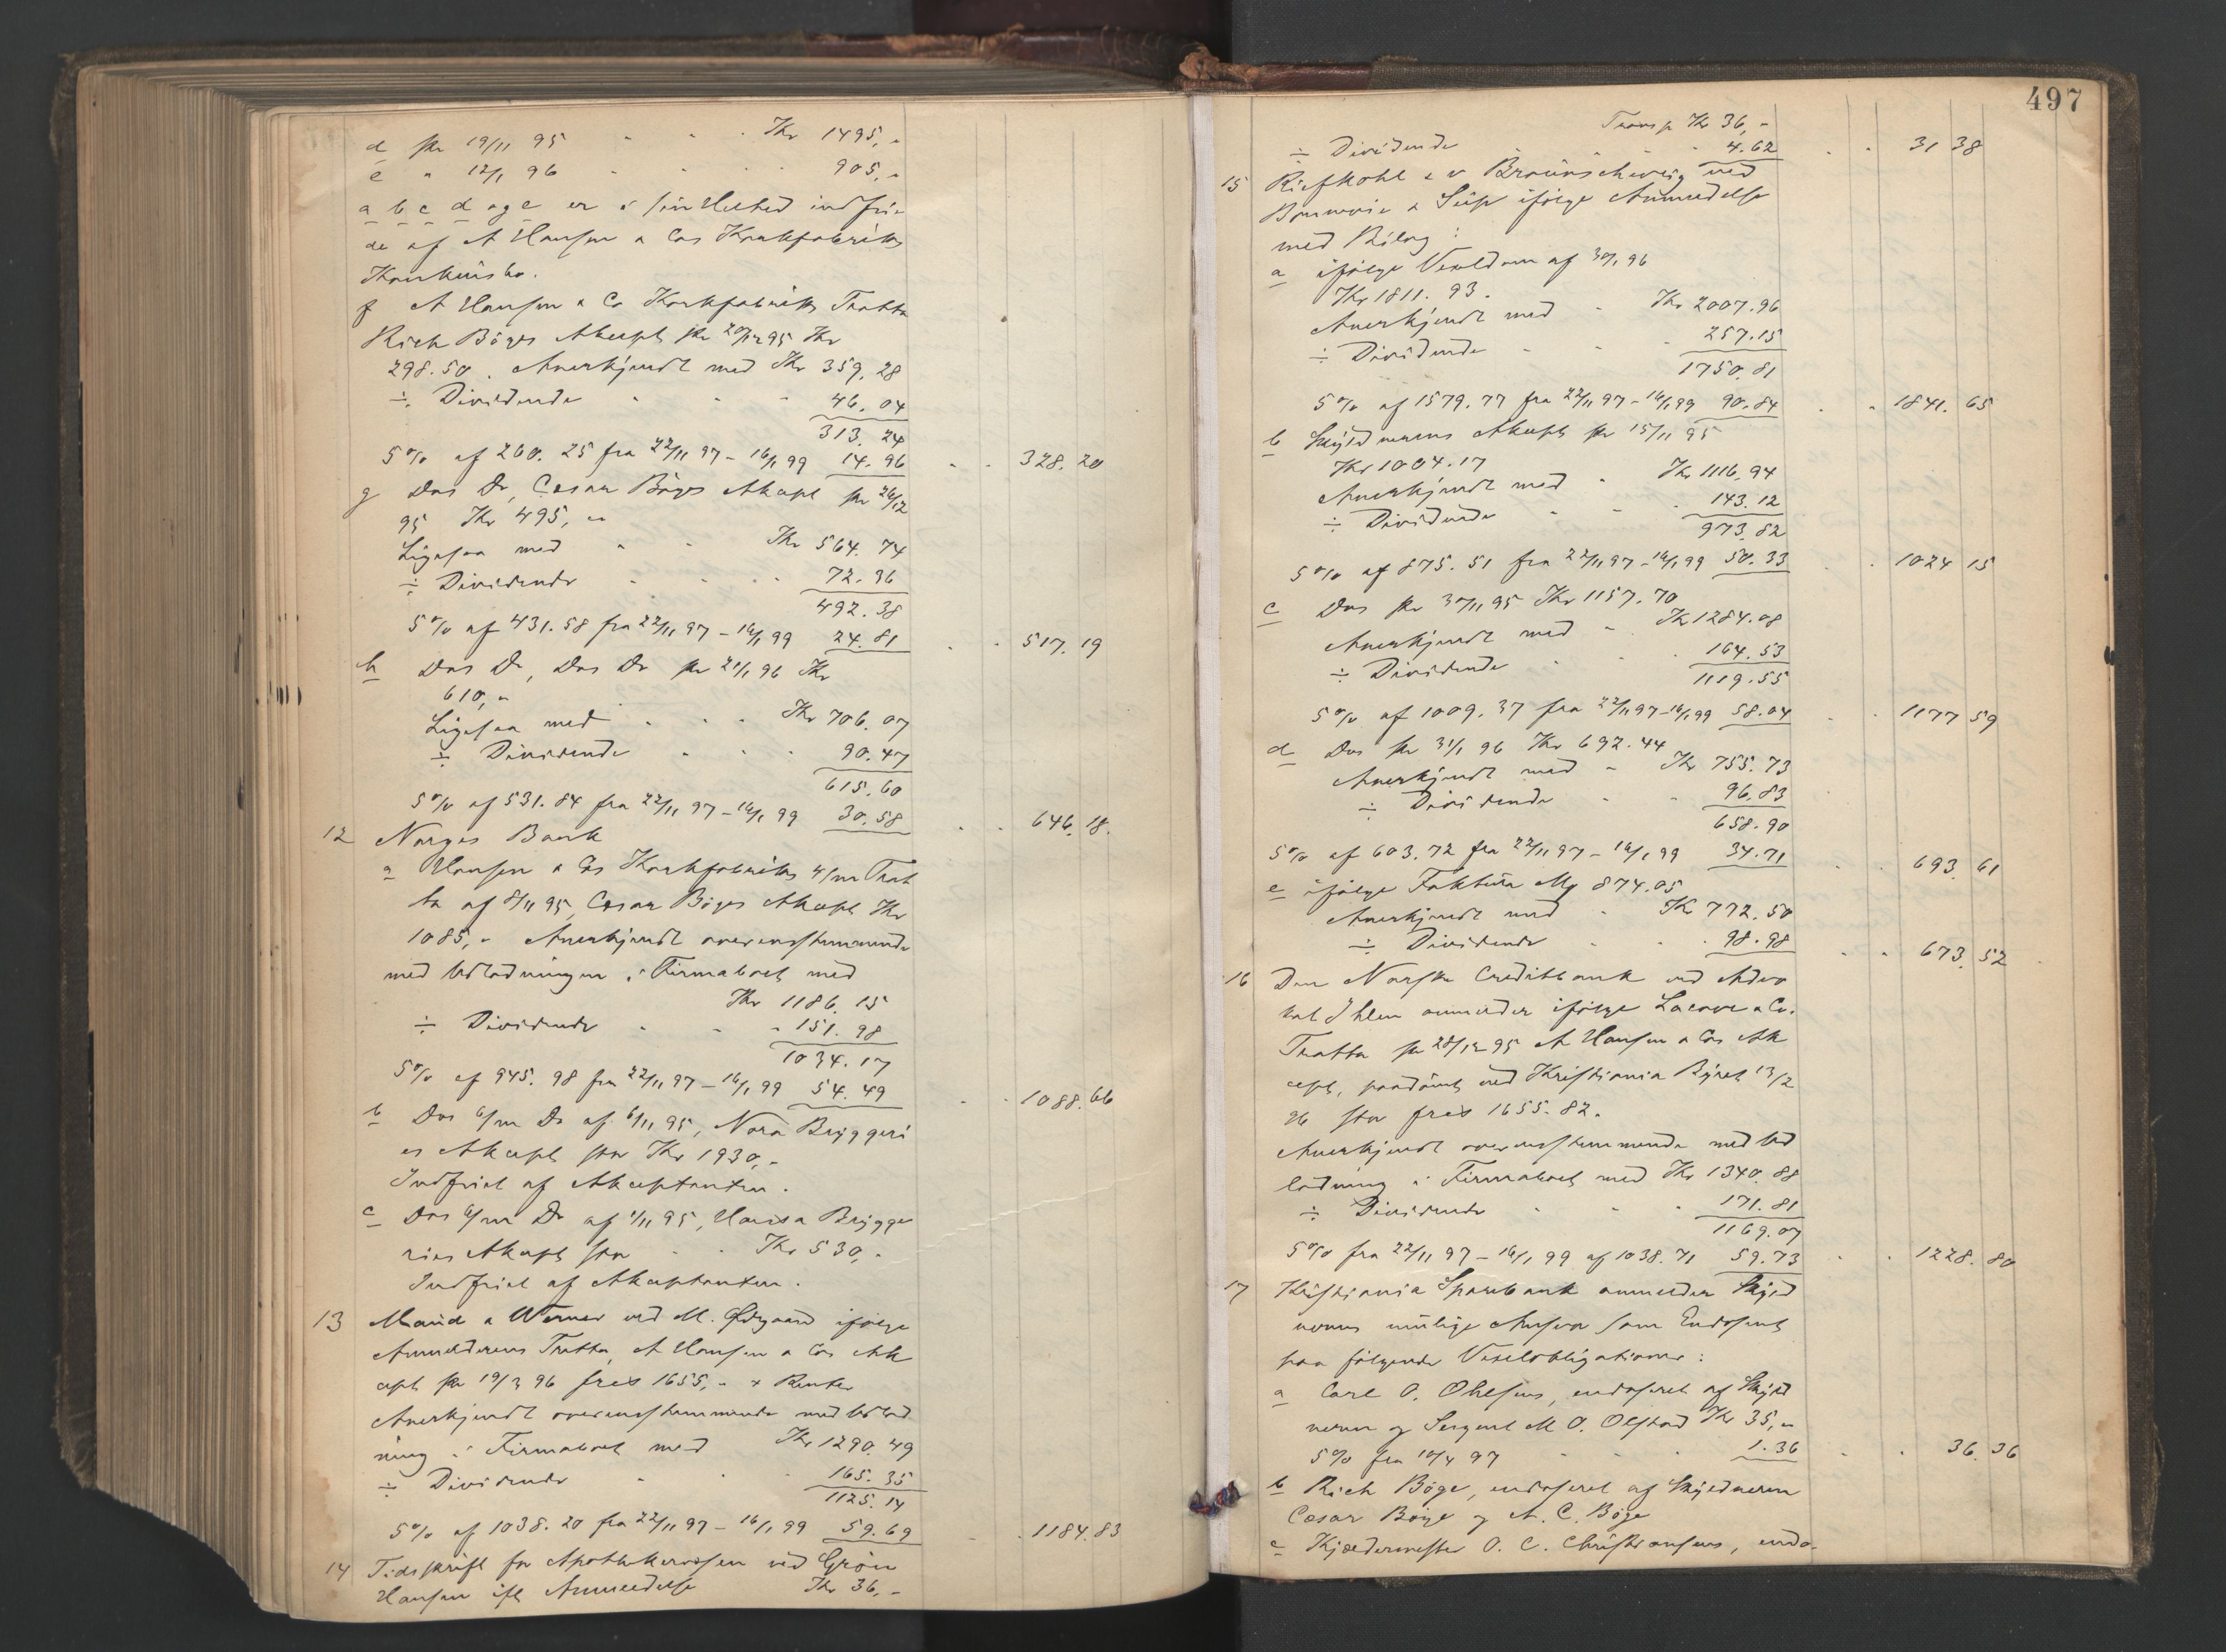 d pr 19/11 95 " " Kr 1495, "
e " 12/1 96 " " 905, "
a b c d og e er i sin Helhed indfri
de af A Hansen & Cos Korkfabriks
Konkursbo.
f A Hansen & Co Korkfabriks Tratta
Rich Böges Akcept pr 20/12 95 Kr
298.50. Anerkjendt med Kr 359.28
÷ Dividende " " " 46.04
313.24
5% af 260.25 fra 22/11 97 - 16/1 99 14.96 " " 328.20
g Das Do, Cæsar Böges Akcept pr 26/12
95 Kr 495, "
Ligesaa med " " Kr 564.74
÷ Dividende " " " 72.36
492.38
5% af 431.58 fra 22/11 97 - 16/1 99 24.81 " " 517.19
h Das Do, Das Do pr 21/1 96 Kr
610, "
Ligesaa med " " " Kr 706.07
÷ Dividende " " " 90.47
615.60
5% af 531.84 fra 22/11 97 - 16/1 99 30.58 " " 646.18.
12 Norges Bank
a Hansen & Cos Korkfabriks 4/m Trat
ta af 8/11 95, Cæsar Böges Akcept Kr
1085, " Anerkjendt overensstemmende
med Udlodningen i Firmaboet med
Kr 1186.15
÷ Dividende " " " 151.98
1034.17
5% af 945.98 fra 22/11 97 - 16/1 99 54.49 " " 1088.66
b Das 6/m Do af 6/11 95, Nora Bryggeri
es Akcept stor Kr 1930, "
Indfriet af Akceptanten.
c Das 6/m Do af 1/11 95, Hansa Brygge
ries Akcept stor " " Kr 530, "
Indfriet af Akceptanten.
13 & Werner ved M. Ødegaard ifølge
Anmelderens Tratta, A Hansen & Cos Ak
cept pr 19/3 96 frcs 1655, " + Renter
Anerkjendt overensstemmende med Udlod
ning i Firmaboet med Kr 1290.49
÷ Dividende " " 165.35
1125.14
5% af 1038.20 fra 22/11 97 - 16/1 99 59.69 " " 1184.83
14 Tidsskrift for Apothekervæsen ved Grön
Hansen ifl Anmeldelse Kr 36, "
497
Transp Kr 36, "
÷ Dividende " 4.62 " " 31 38
15 Riefkohl & v Braunschweig ved
ifølge Anmeldelse
med Bilag:
a ifølge Vexeldom af 30/1 96
Kr 1811.93.
Anerkjendt med " Kr 2007.96
÷ Dividende " " " 257.15
1750.81
5% af 1579.77 fra 22/11 97 - 16/1 99 90.84 " " 1841.65
b Skyldnerens Akcept pr 15/11 95
Kr 1004.17
Anerkjendt med " Kr 1116.94
÷ Dividende " " " 143.12
973.82
5% af 875.51 fra 22/11 97 - 16/1 99 50.33 " " 1024 15
c Das pr 30/11 95 Kr 1157.70
Anerkjendt med " Kr 1284.08
÷ Dividende " " 164.53
1119.55
5% af 1009.37 fra 22/11 97 - 16/1 99 58.04 " " 1177 59
d Das pr 31/1 96 Kr 692.44
Anerkjendt med " Kr 755.73
÷ Dividende " " 96.83
658.90
5% af 603.72 fra 22/11 97 - 16/1 99 34.71 " " 693.61
e ifølge Faktura Mg 874.05
Anerkjendt med " Kr 772.50
÷ Dividende " " 98.98 " " 673.52
16 Den Norske Creditbank ved Advo
kat Ihlen anmelder ifølge Lacave & Co.
Tratta pr 28/12 95 A Hansen & Cos Ak
cept, paadömt ved Kristiania Byret 13/2
96 stor frcs 1655.82.
Anerkjendt overensstemmende med Ud
lodning i Firmaboet med Kr 1340.88
÷ Dividende " " " 171.81
1169.07
5% fra 22/11 97 - 16/1 99 af 1038.71 59.73 " " 1228.80
17 Kristiania Sparebank anmelder Skyld
nerens mulige Ansvar som Endosent
paa følgende Vexelobligationer:
a Carl O. Ohlsens, endosseret af Skyld
neren og Sergent M O. Olstad Kr 35, "
5% fra 10/4 97 " " " 1.36 " " 36.36
b Rich Böge, endosseret af Skyldneren
Cæsar Böge og A. C. Böge
c Kjældermester O. C. Christiansens, endo-